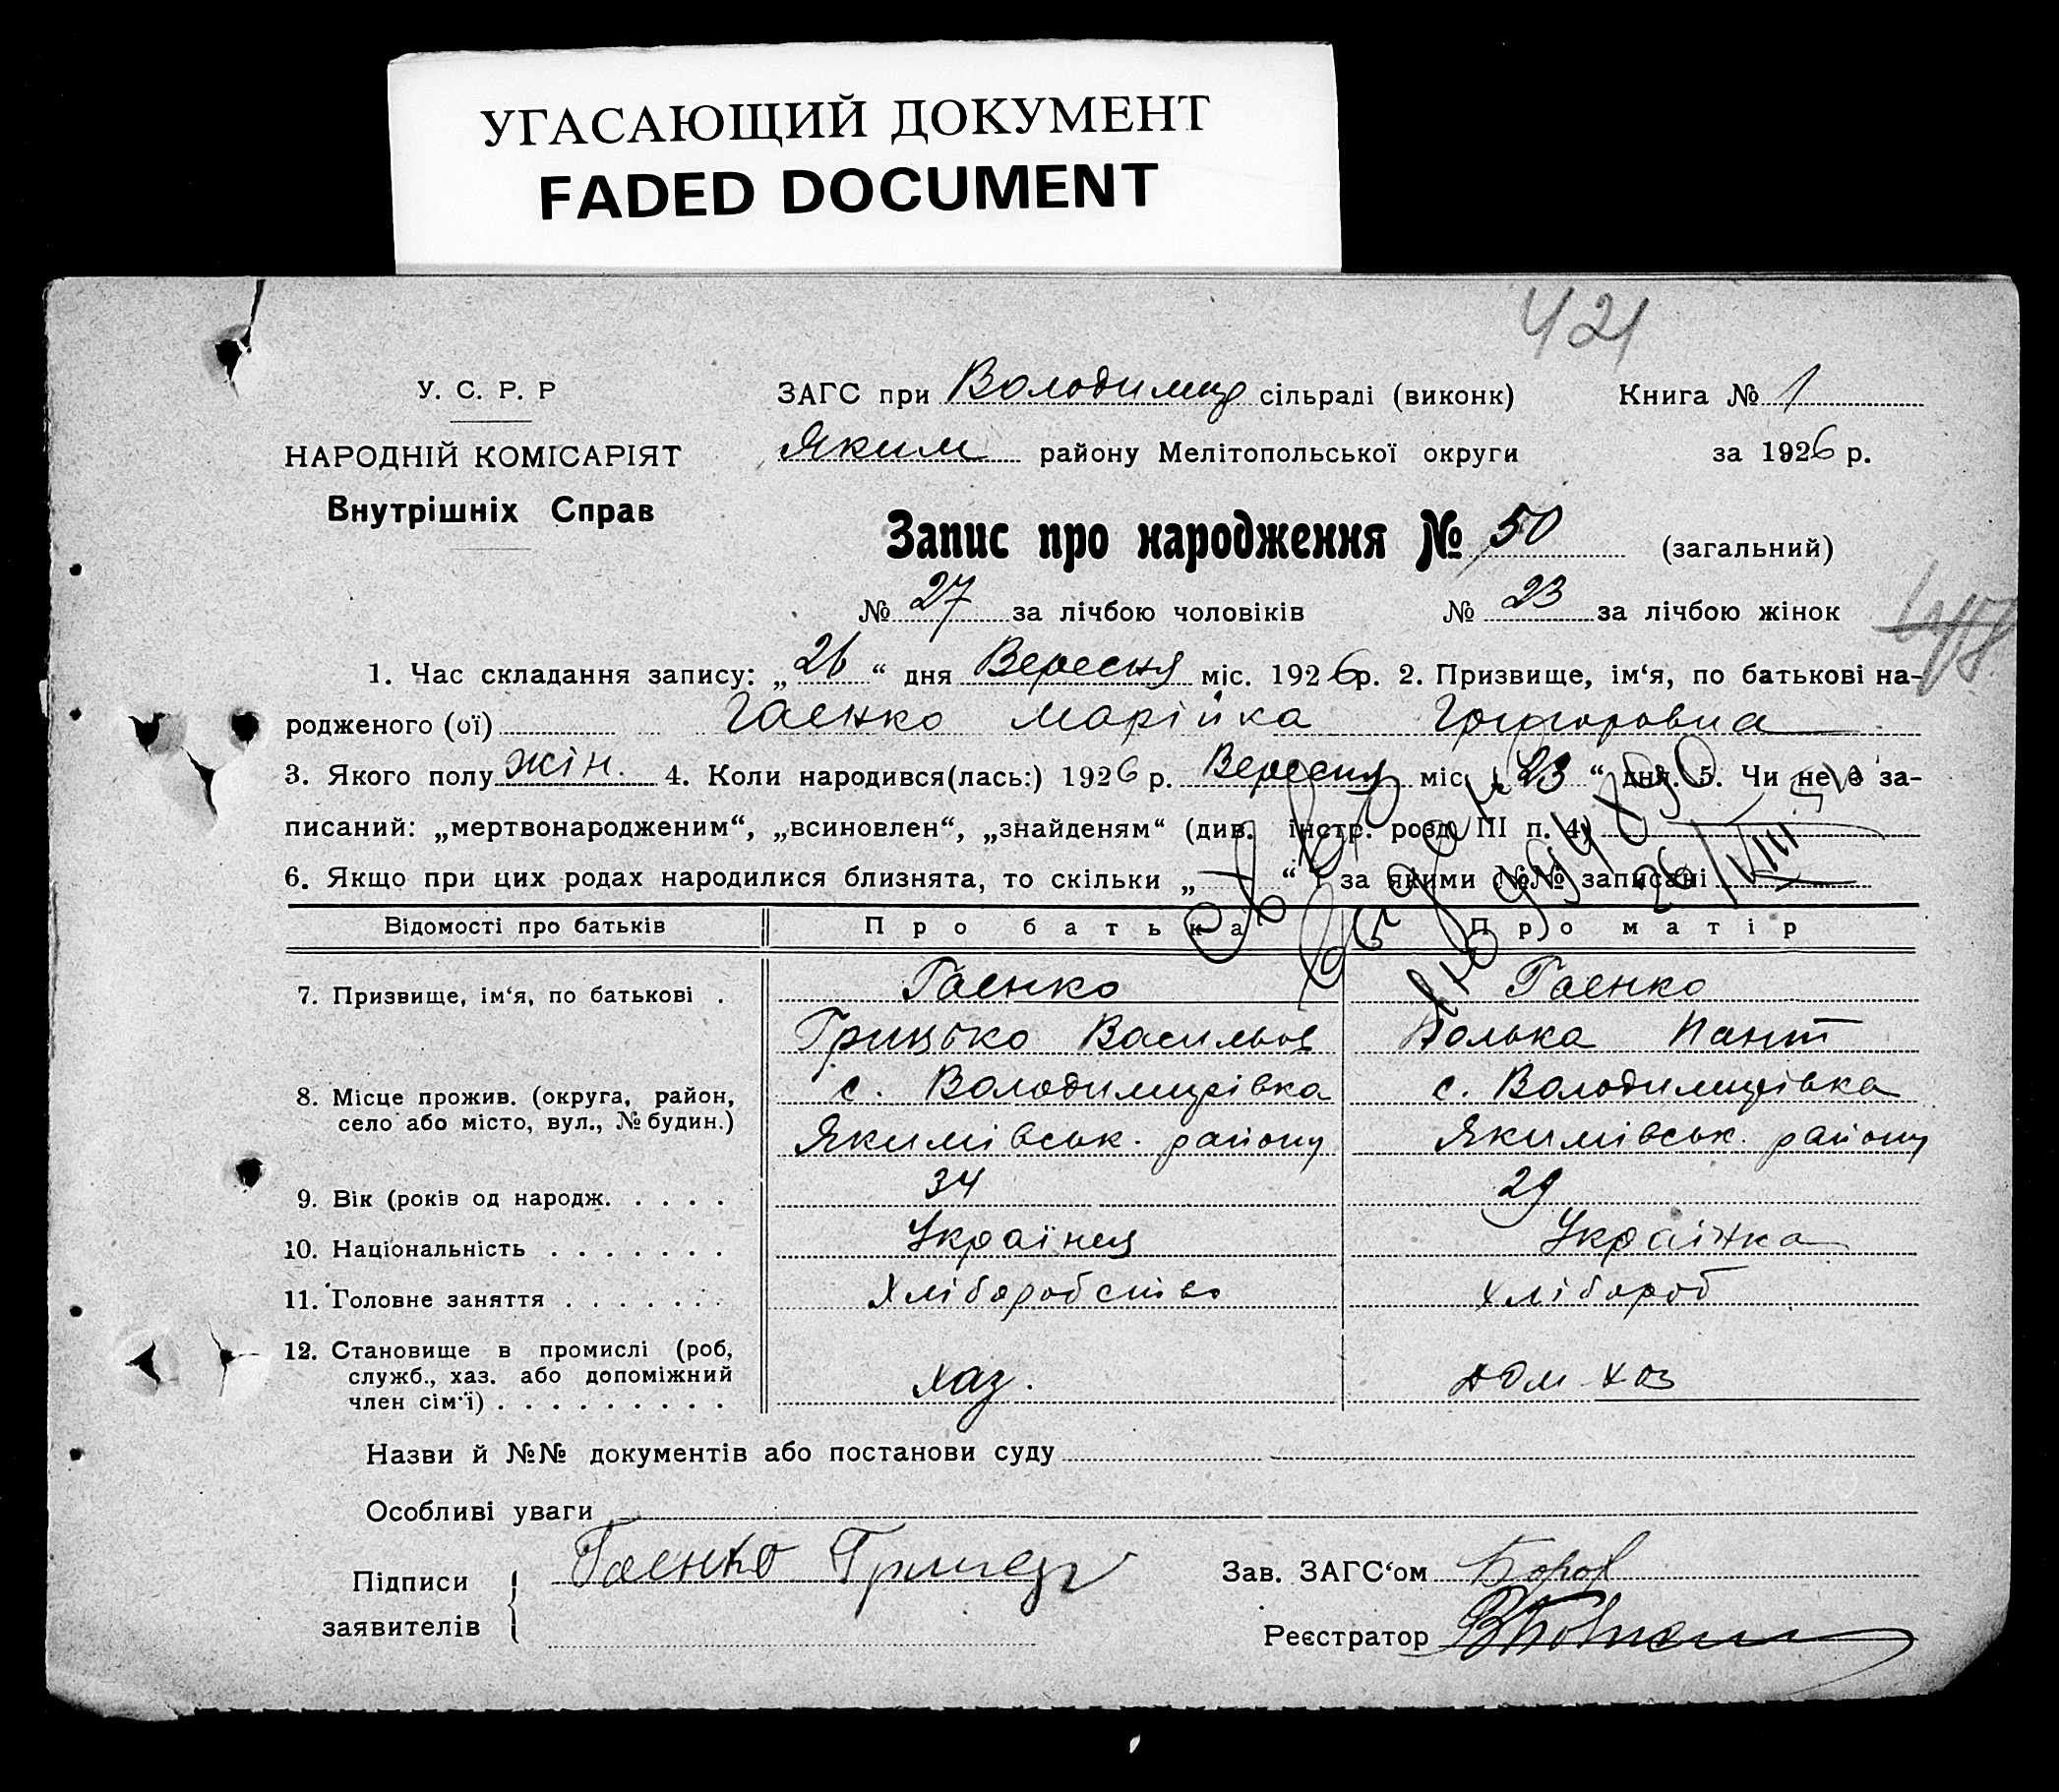 УГАСАЮЩИЙ ДОКУМЕНТ
FADED DOCUMENT
421
У. С. Р. Р
НАРОДНІЙ КОМІСАРІЯТ
Внутрішніх Справ
ЗАГС при Володимир сільраді (виконк) Книга № 1
Яким району Мелітопольської округи за 1926 р.
Запис про народження № 50 (загальний)
№ 27 за лічбою чоловіків № 23 за лічбою жінок
1. Час складання запису: „26“ дня Вересня міс. 1926р. 2. Призвище, ім‘я, по батькові на-
родженого (ої) Гаєнко Марійка Григоровна
3. Якого полу жін. 4. Коли народився(лась:) 1926 р. Вересня міс. „23“ дня. 5. Чи не є за-
писаний: „мертвонародженим“, „всиновлен“, „знайденям“ (див. інстр. розд. III п. 4)
6. Якщо при цих родах народилися близнята, то скільки „—“ і за якими №№ записані
26/VIII
Відомості про батьків Про батька Про матір
7. Призвище, ім‘я, по батькові . Гаенко Гаенко
Грицько Васильов Полька Пант
8. Місце прожив. (округа, район, с. Володимирівка с. Володимирівка
село або місто, вул., № будин.) Якимівськ. району Якимівськ. району
9. Вік (років од народж. . . . . 34 29
10. Національність . . . . . . . Українец Українка
11. Головне заняття . . . . . . . Хліборобство хлібороб
12. Становище в промислі (роб,
служб., хаз. або допоміжний хаз. дом хоз
член сім‘ї) . . . . . . . . .
Назви й №№ документів або постанови суду
Особливі уваги
Підписи Гаенко Зав. ЗАГС‘ом
заявителів Реєстратор